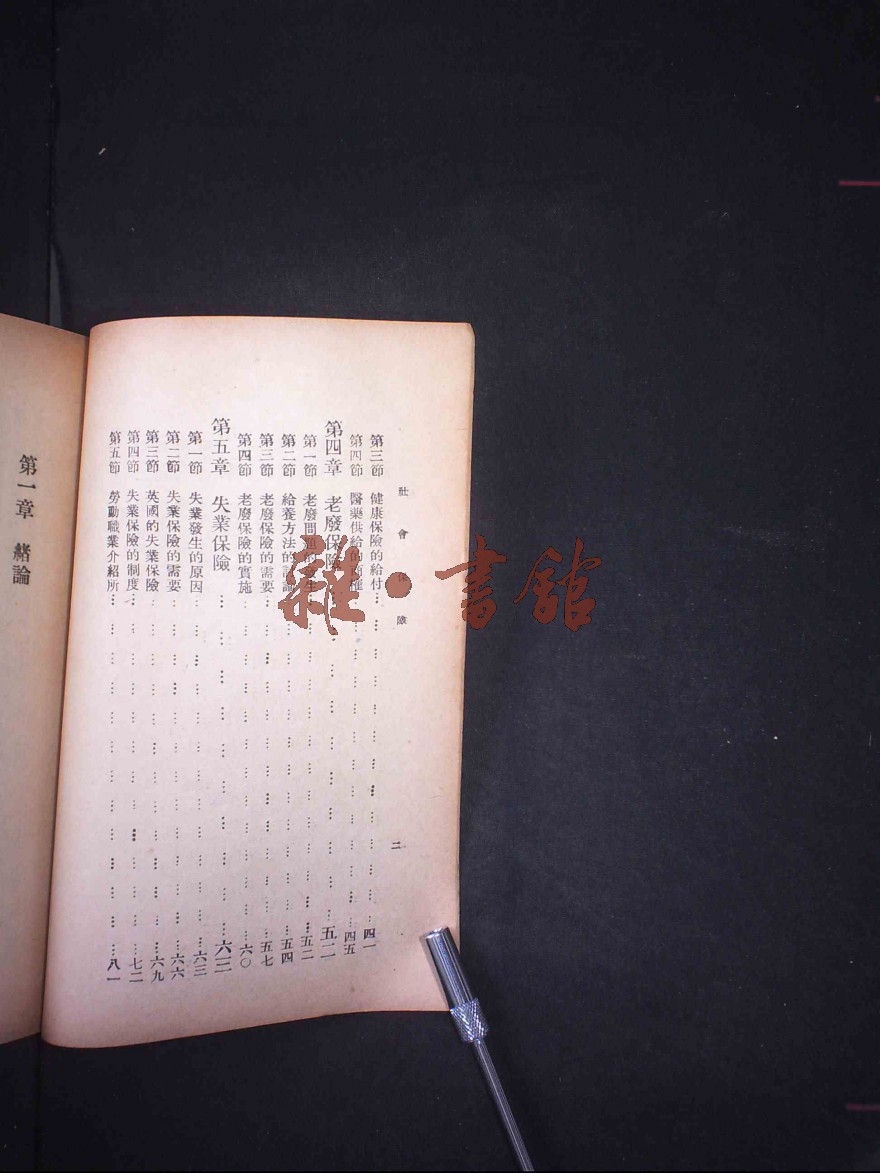 社會保險
二
第三節 健康保險的給付⋯⋯四一
第四節 醫藥供給的⋯⋯四五
第四章 老廢保險⋯⋯五二
第一節 老廢問題的發生⋯⋯五二
第二節 給養方法的討論⋯⋯五四
第三節 老廢保險的需要⋯⋯五七
第四節 老廢保險的實施⋯⋯六〇
第五章 失業保險⋯⋯六三
第一節 失業發生的原因⋯⋯六三
第二節 失業保險的需要⋯⋯六六
第三節 英國的失業保險⋯⋯六九
第四節 失業保險的制度⋯⋯七二
第五節 勞動職業介紹所⋯⋯八一
第一章 緒論
雜·書館